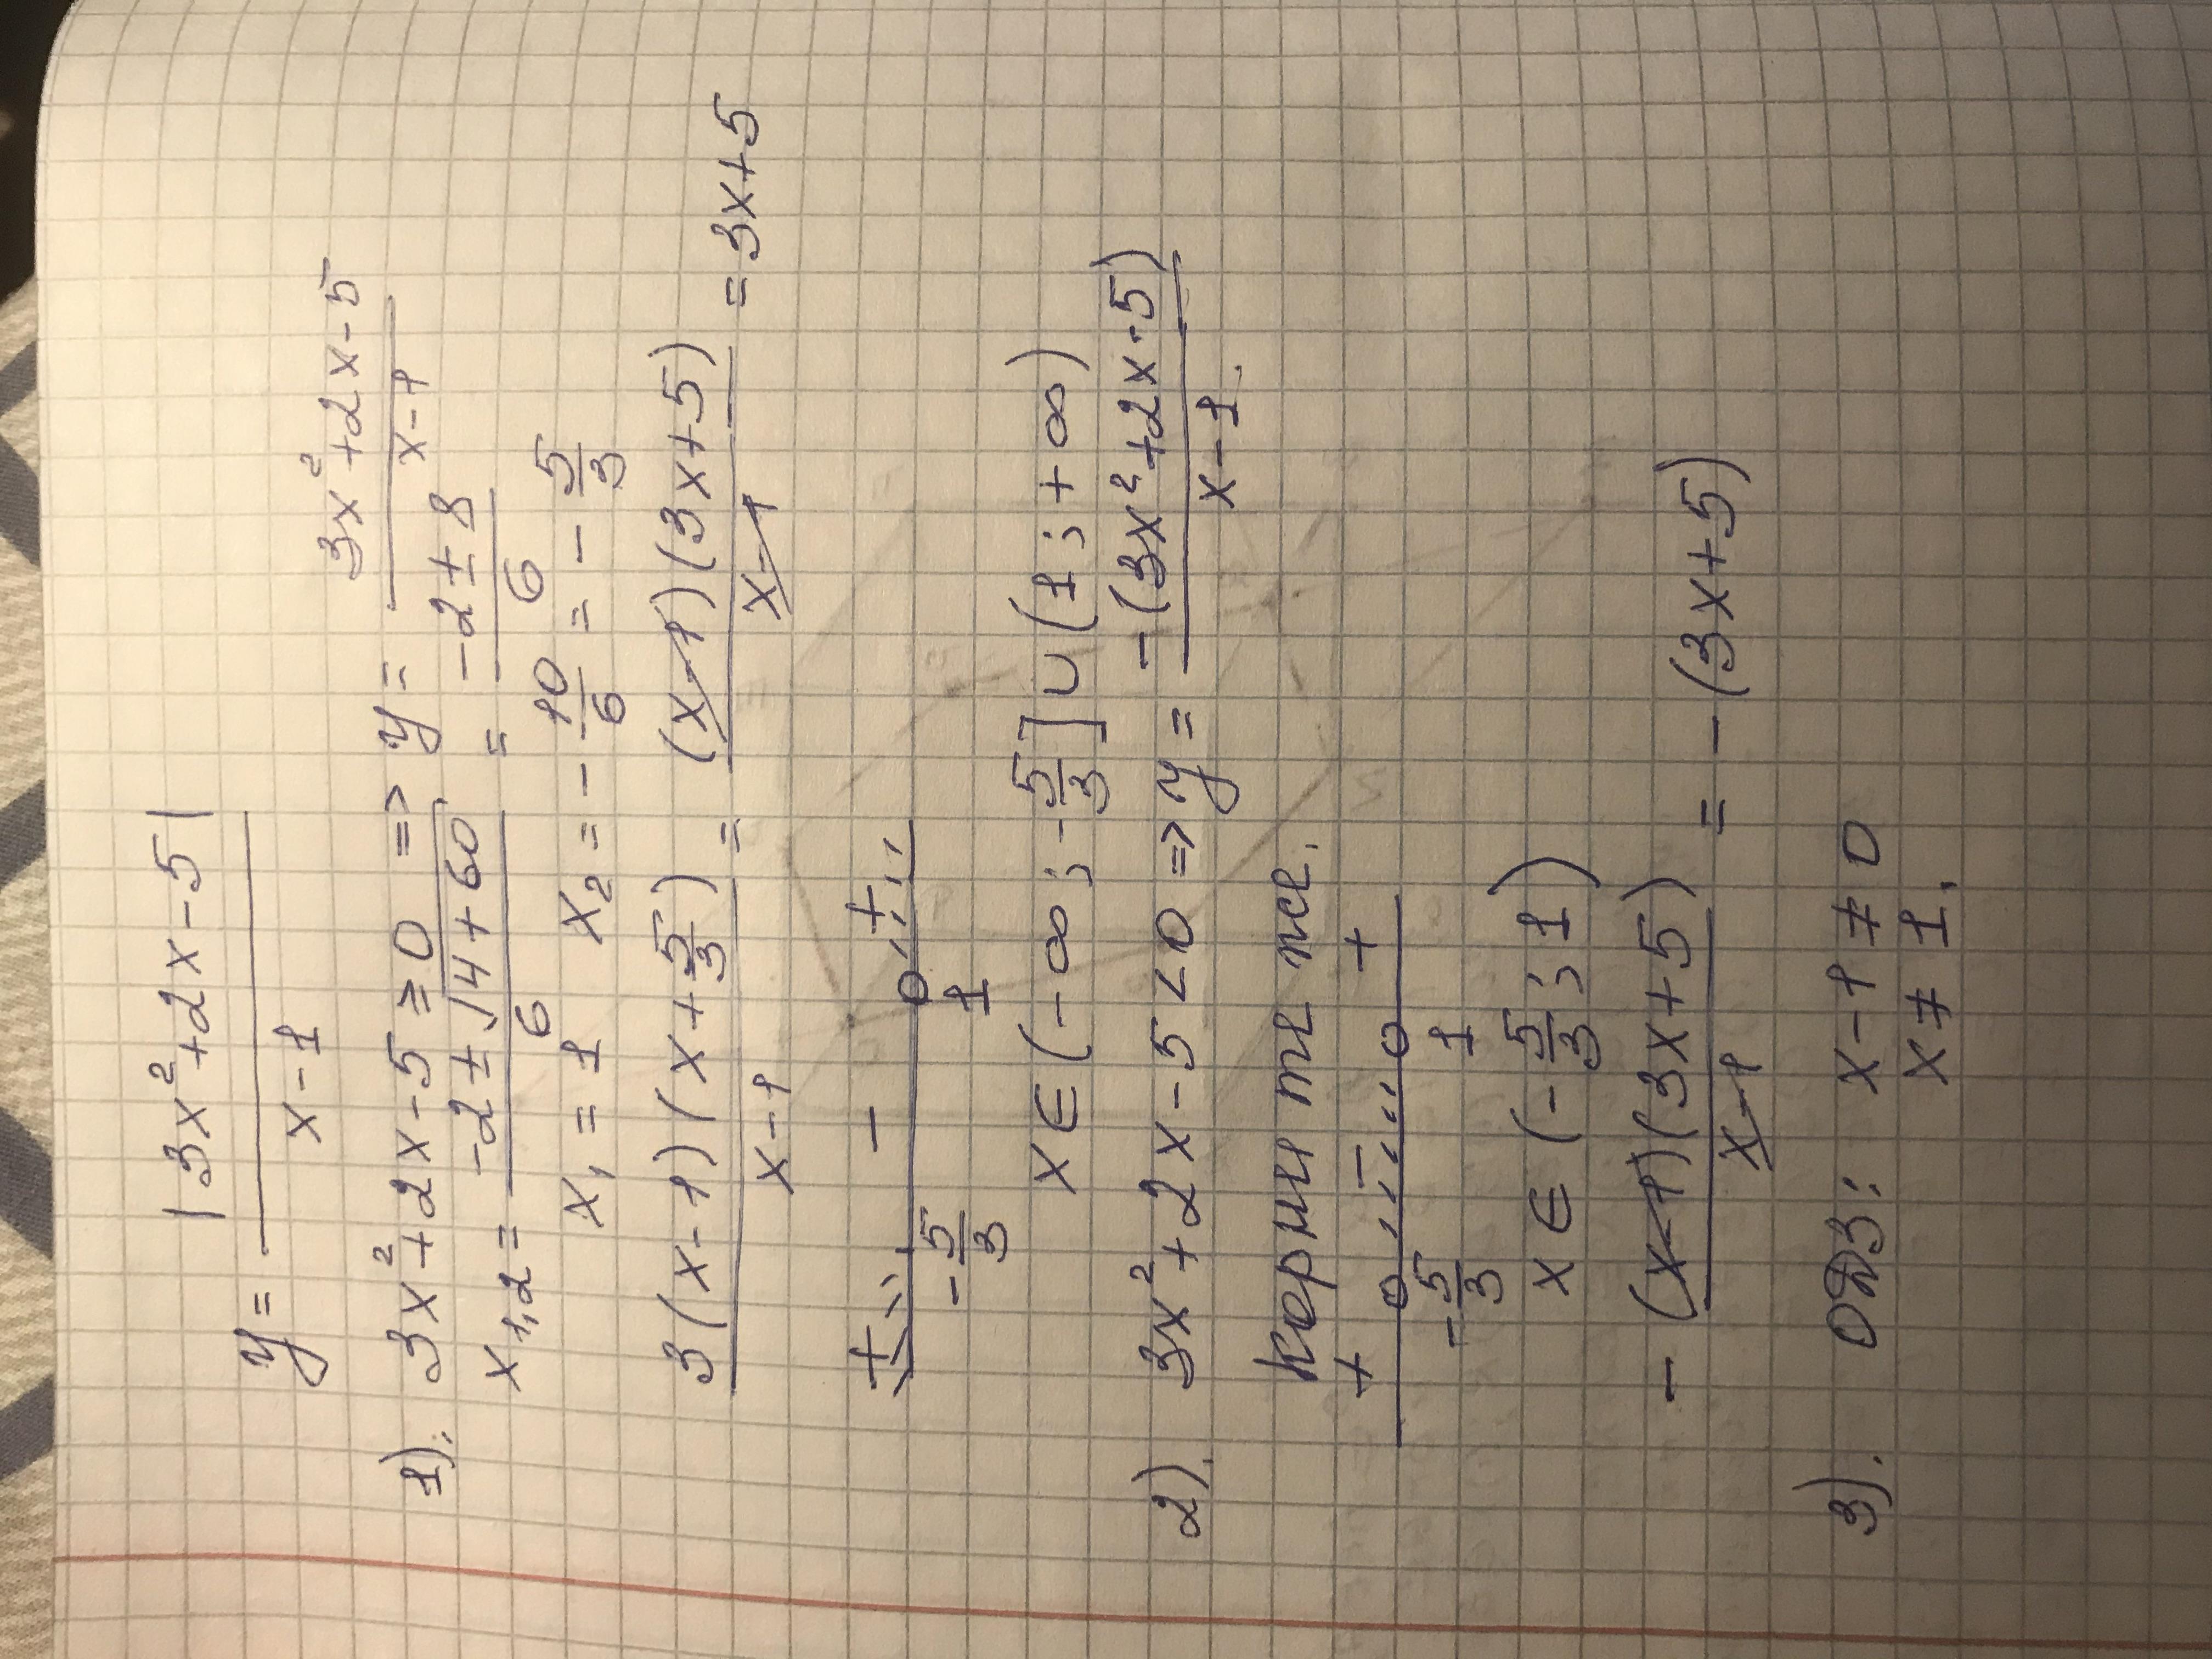 y = |3x²+2x-5| / x-1
1). 3x²+2x-5 ≥ 0 => y = 3x²+2x-5 / x-1
x₁,₂ = -2 ± √4+60 / 6 = -2 ± 8 / 6
x₁ = 1 x₂ = -10/6 = -5/3
3(x-1)(x+5/3) / x-1 = (x-1)(3x+5) / x-1 = 3x+5
+ - +
-5/3 1
x ∈ (-∞; -5/3] ∪ (1; +∞)
2). 3x²+2x-5 < 0 => y = -(3x²+2x-5) / x-1.
Корни те же.
+ - +
-5/3 1
x ∈ (-5/3; 1)
- (x-1)(3x+5) / x-1 = -(3x+5)
3). ОДЗ: x-1 ≠ 0
x ≠ 1.